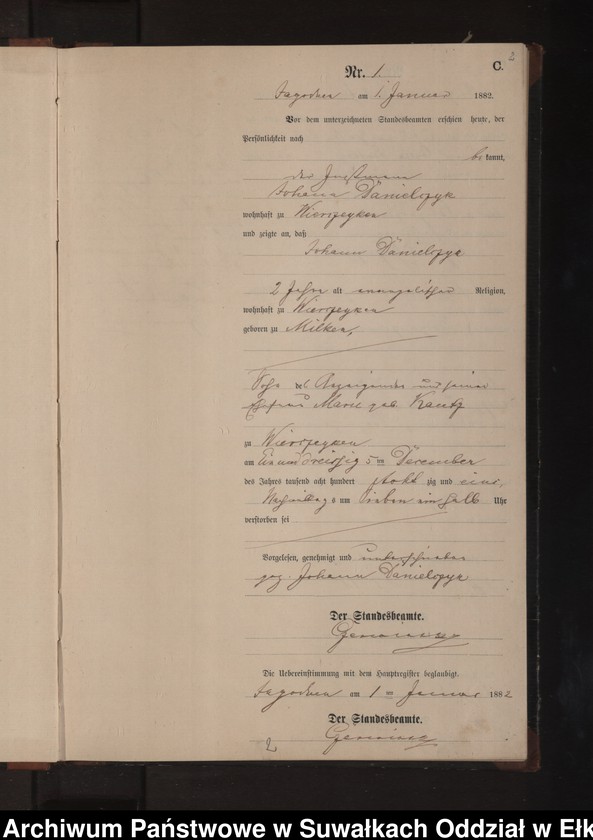 2
C.
Nr. 1.
Jagodnen am 1. Januar 1882.
Vor dem unterzeichneten Standesbeamten erschien heute, der
Persönlichkeit nach
be kannt,
der Instmann
Johann Danielczyk
wohnhaft zu Wierszeyken
und zeigte an, daß
Johann Danielczyk
2 Jahre alt evangelischer Religion,
wohnhaft zu Wierszeyken
geboren zu Milken,
Sohn des Anzeigenden und seiner
Ehefrau Marie geb.
zu Wierszeyken
am ein und dreissigsten December
des Jahres tausend acht hundert achtzig und eins,
Nachmittags um sieben ein halb Uhr
verstorben sei
Vorgelesen, genehmigt und unterschrieben
gez. Johann Danielczyk
Der Standesbeamte.
Die Uebereinstimmung mit dem Hauptregister beglaubigt.
Jagodnen am 1 ten Januar 1882
Der Standesbeamte.
2
Archiwum Państwowe w Suwałkach Oddział w Ełk